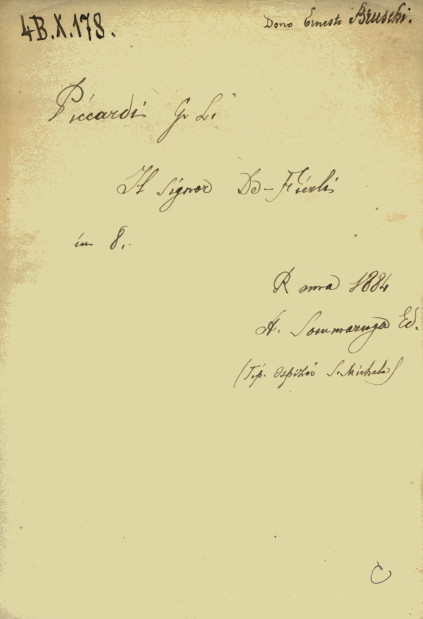 4B.X.178.
Dono Ernesto Bruschi.
Piccardi G. L.
Il Signor De-Fierli
in 8.
Roma 1884
A. Sommaruga Ed.
(Tip. Ospizio S. Michele)
C